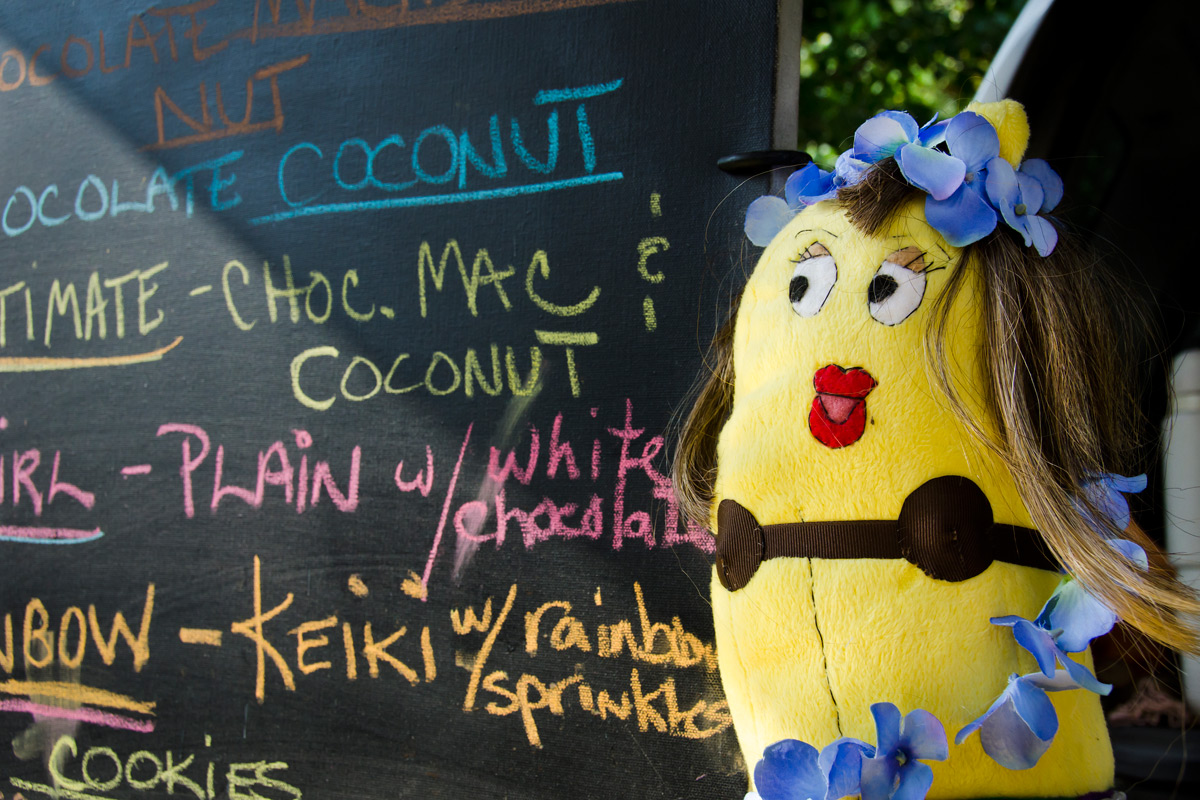 OCOLATE MAC
NUT
OCOLATE COCONUT
TIMATE - CHOC. MAC &
COCONUT
IRL - PLAIN w/ white
chocolate
NBOW - KEIKI w/ rainbow
sprinkles
COOKIES